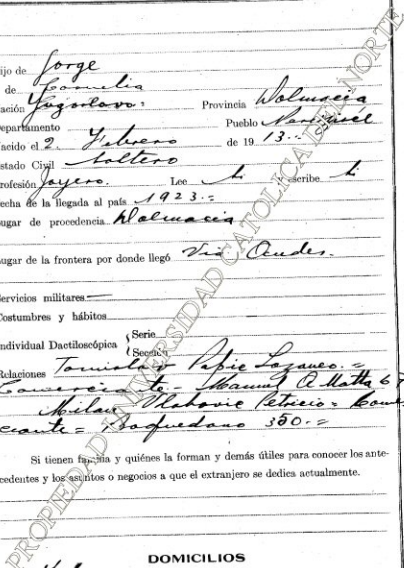 ijo de Jorge
de Cornelia
ación Yugoslavo. Provincia Dalmacia
epartamento Pueblo
acido el 2 Febrero de 19 13.-
stado Civil Soltero
rofesión Joyero. Lee si y escribe si
echa de la llegada al país 1923.=
ugar de procedencia Dalmacia
ugar de la frontera por donde llegó Vía Andes.
ervicios militares
ostumbres y hábitos
ndividual Dactiloscópica { Serie
Sección
Relaciones Tomislav Papic Lazaneo.=
Comerciante.- Manuel A. Matta 6
Milan Vlahovic Petricio= Comer
ciante= Baquedano 350.=
Si tienen familia y quiénes la forman y demás útiles para conocer los ante-
cedentes y los asuntos o negocios a que el extranjero se dedica actualmente.
DOMICILIOS
PROPIEDAD UNIVERSIDAD CATOLICA DEL NORTE